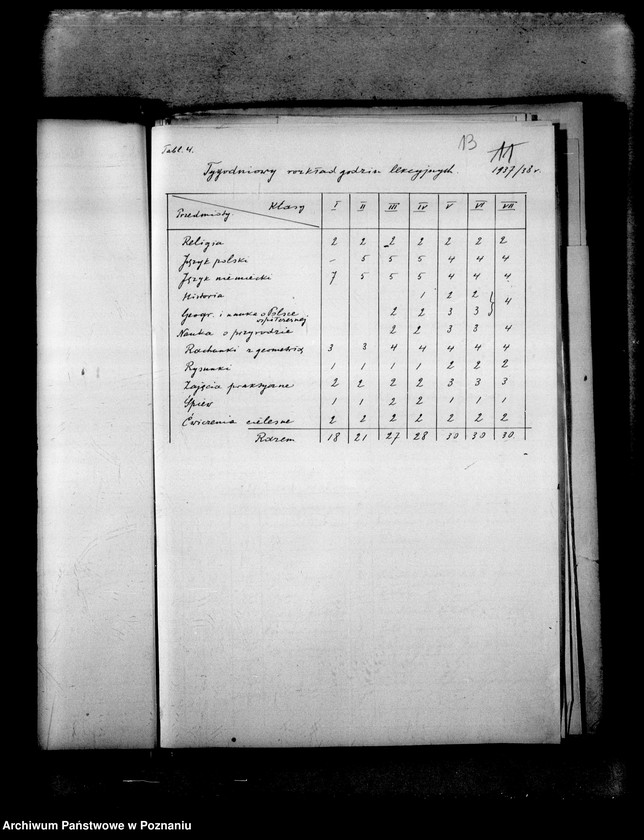 Tabl. 4.
13
11
Tygodniowy rozkład godzin lekcyjnych.
1937/38 r.
Klasy I II III IV V VI VII
Przedmioty.
Religia 2 2 2 2 2 2 2
Język polski - 5 5 5 4 4 4
Język niemiecki 7 5 5 5 4 4 4
Historia 1 2 2
Geogr. i nauka o Polsce 2 2 3 3 } 4
współczesnej
Nauka o przyrodzie 2 2 3 3 4
Rachunki z geometrią 3 3 4 4 4 4 4
Rysunki 1 1 1 1 2 2 2
Zajęcia praktyczne 2 2 2 2 3 3 3
Śpiew 1 1 2 2 1 1 1
Ćwiczenia cielesne 2 2 2 2 2 2 2
Razem 18 21 27 28 30 30 30
Archiwum Państwowe w Poznaniu